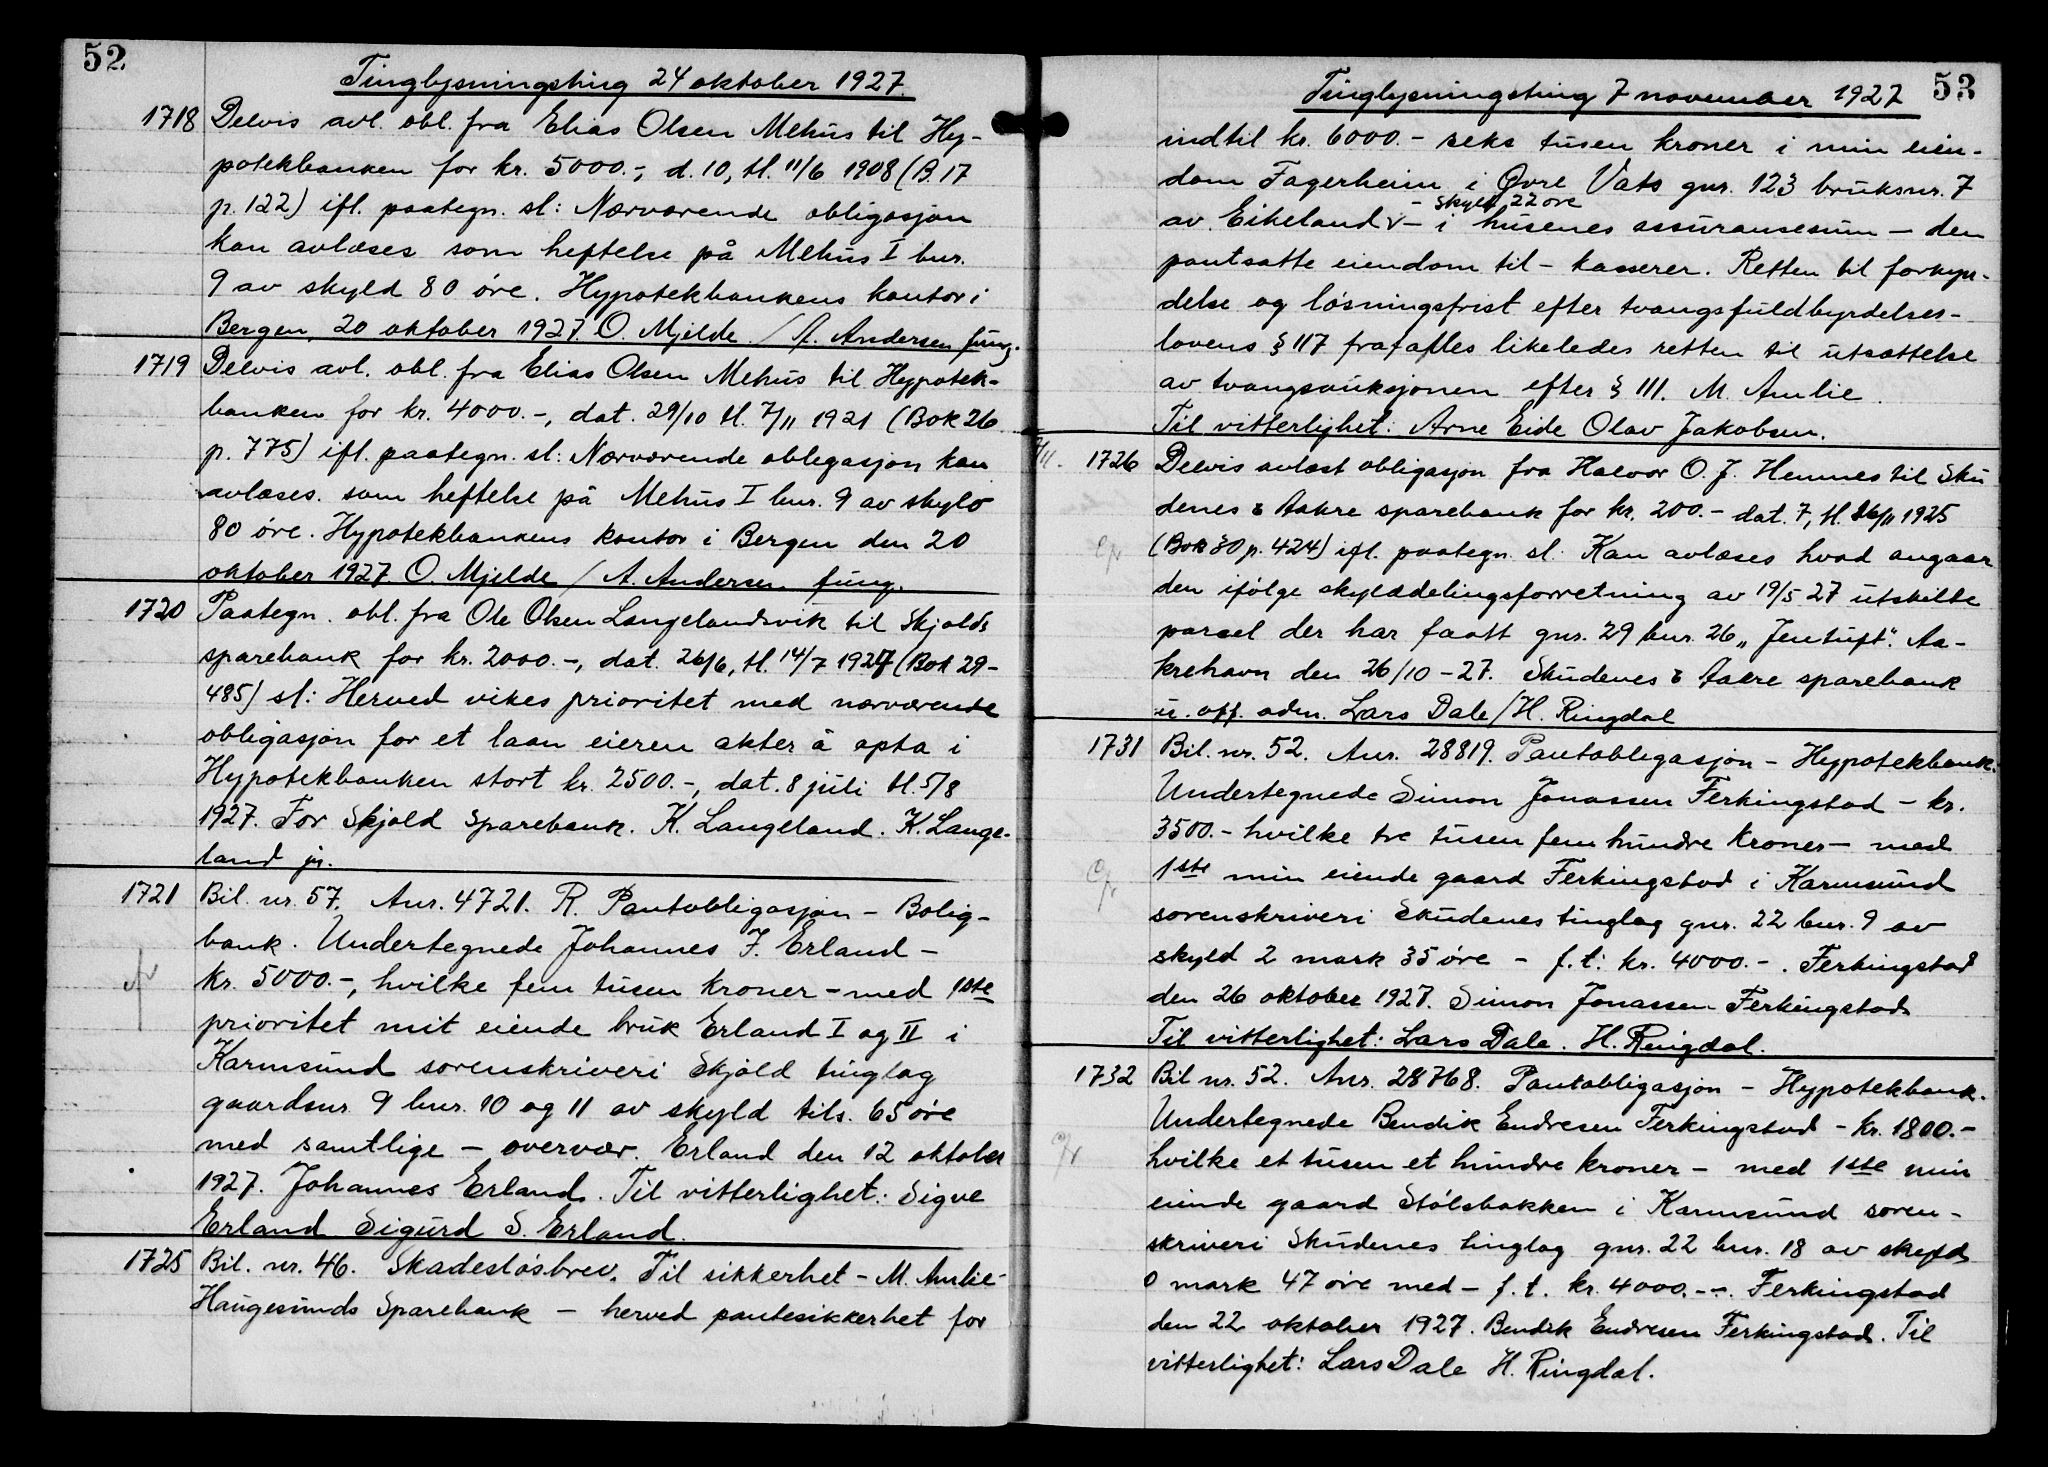 52
Tinglysningsting 24 oktober 1927.
1718 Delvis avl. obl. fra Elias Olsen Mehus til Hy-
potekbanken for kr. 5000.-, d. 10, tl. 11/6 1908 (B. 17
p. 122) ifl. paategn. sl: Nærværende obligasjon
kan avlæses som heftelse på Mehus I bnr.
9 av skyld 80 øre. Hypotekbankens kontor i
Bergen, 20 oktober 1927. O. Mjelde / A. Andersen fung.
1719 Delvis avl. obl. fra Elias Olsen Mehus til Hypotek-
banken for kr. 4000.-, dat. 29/10 tl. 7/11 1921 (Bok 26
p. 775) ifl. paategn. sl: Nærværende obligasjon kan
avlæses som heftelse på Mehus I bnr. 9 av skyld
80 øre. Hypotekbankens kontor i Bergen den 20
oktober 1927 O. Mjelde / A. Andersen fung.
1720 Paategn. obl. fra Ole Olsen Langelandsvik til Skjolds
sparebank for kr. 2000.-, dat. 26/6, tl. 14/7 1924 (Bok 29-
485) sl: Herved vikes prioritet med nærværende
obligasjon for et laan eieren akter å opta i
Hypotekbanken stort kr. 2500.-, dat. 8 juli tl. 5/8
1927. For Skjold Sparebank. K. Langeland. K. Lange-
land jr.
1721 Bil. nr. 57. Anr. 4721. R. Pantobligasjon - Bolig-
bank. Undertegnede Johannes J. Erland -
kr. 5000.-, hvilke fem tusen kroner - med 1ste
prioritet mit eiende bruk Erland I og II i
Karmsund sorenskriveri Skjold tinglag
gaardsnr. 9 bnr. 10 og 11 av skyld tils. 65 øre
med samtlige - overvær. Erland den 12 oktober
1927. Johannes Erland. Til vitterlighet: Sigve
Erland Sigurd S. Erland.
1725 Bil. nr. 46. Skadesløsbrev. Til sikkerhet - M. Amlie -
Haugesunds Sparebank - herved pantesikkerhet for
53
Tinglysningsting 7 november 1927
indtil kr. 6000.- seks tusen kroner i min eien-
dom Fagerheim i Øvre Vats gnr. 123 bruksnr. 7
- skyld 22 øre
av Eikeland - i husenes assuransesum - den
pantsatte eiendom til - kasserer. Retten til forkyn-
delse og løsningsfrist efter tvangsfuldbyrdelses-
lovens § 117 frafalles likeledes retten til utsættelse
av tvangsauksjonen efter § 111. M. Amlie.
Til vitterlighet: Arne Eide Olav Jakobsen.
7/11. 1726 Delvis avlæst obligasjon fra Halvor O. J. Hemnes til Sku
denes & Aakre sparebank for kr. 200.- dat. 7, tl. 26/11 1925
(Bok 30 p. 424) ifl. paategn. sl. Kan avlæses hvad angaar
den ifølge skylddelingsforretning av 19/5 27 utskilte
parsel der har faatt gnr. 29 bnr. 26 „Jentuft". Aa-
krehavn den 26/10 - 27. Skudenes & Aakre sparebank
u. off. adm. Lars Dale / H. Ringdal
1731 Bil. nr. 52. Anr. 28819. Pantobligasjon - Hypotekbank.
Undertegnede Simon Jonassen Ferkingstad - kr.
3500.- hvilke tre tusen fem hundre kroner - med
1ste min eiende gaard Ferkingstad i Karmsund
sorenskriveri Skudenes tinglag gnr. 22 bnr. 9 av
skyld 2 mark 35 øre - f. t: kr. 4000.- . Ferkingstad
den 26 oktober 1927. Simon Jonassen Ferkingstad.
Til vitterlighet: Lars Dale. H. Ringdal.
1732 Bil nr. 52. Anr. 28768. Pantobligasjon - Hypotekbank.
Undertegnede Bendik Endresen Ferkingstad - kr. 1800.-
hvilke et tusen et hundre kroner - med 1ste min
eiende gaard Stølsbakken i Karmsund soren-
skriveri Skudenes tinglag gnr. 22 bnr. 18 av skyld
0 mark 47 øre med - f. t. kr. 4000.--. Ferkingstad
den 22 oktober 1927. Bendik Endresen Ferkingstad. Til
vitterlighet: Lars Dale H. Ringdal.